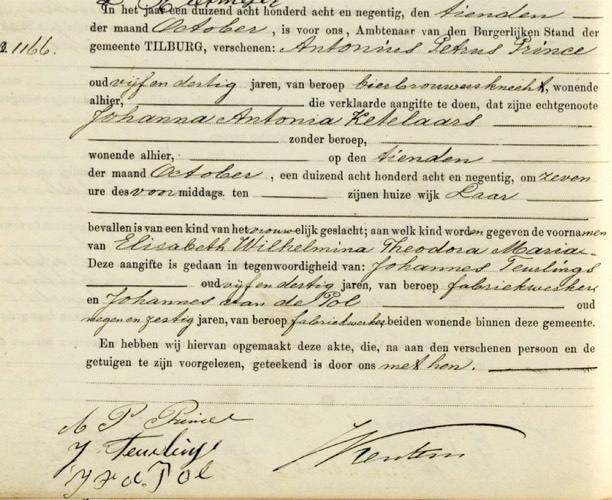 In het jaar een duizend acht honderd acht en negentig, den tienden
der maand October, is voor ons, Ambtenaar van den Burgerlijken Stand der
1166.
gemeente TILBURG, verschenen: Antonius Petrus Prince
oud vijf en dertig jaren, van beroep bierbrouwersknecht, wonende
alhier, die verklaarde aangifte te doen, dat zijne echtgenoote
Johanna Antonia Ketelaars
zonder beroep,
wonende alhier, op den tienden
der maand October, een duizend acht honderd acht en negentig, om zeven
ure des voormiddags. ten zijnen huize wijk Laar
bevallen is van een kind van het vrouwelijk geslacht; aan welk kind worden gegeven de voornamen
van Elisabeth Wilhelmina Theodora Maria
Deze aangifte is gedaan in tegenwoordigheid van: Johannes Teurlings
oud vijf en dertig jaren, van beroep fabriekwerker
en Johannes van de Pol oud
negen en zestig jaren, van beroep fabriekwerker beiden wonende binnen deze gemeente.
En hebben wij hiervan opgemaakt deze akte, die, na aan den verschenen persoon en de
getuigen te zijn voorgelezen, geteekend is door ons met hen.
A P Prince
J. Teurlings
J v d Pol